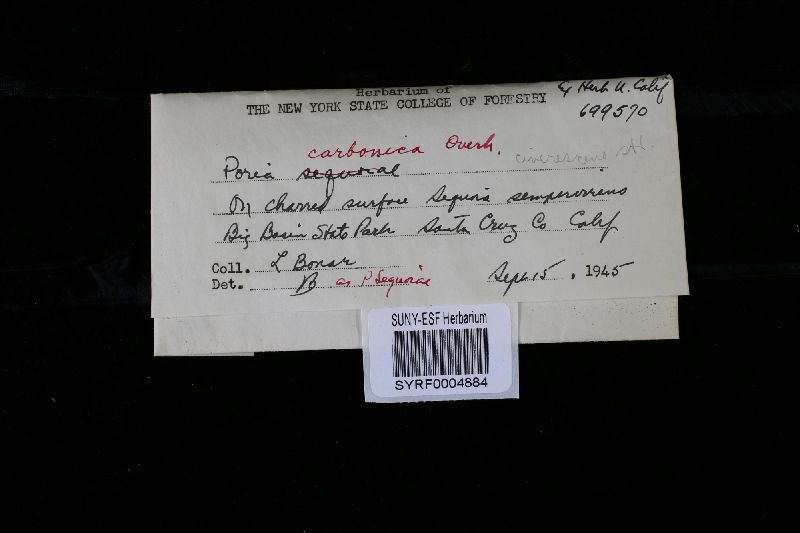 Herbarium of
THE NEW YORK STATE COLLEGE OF FORESTRY
Ex Herb U. Calif
699570
carbonica Overh.
Poria sequoiae
On charred surface Sequoia sempervirens
Big Basin State Park Santa Cruz Co Calif
Coll. L Bonar
Det. B as P Sequoiae
Sept 15, 1945
SUNY-ESF Herbarium
SYRF0004884